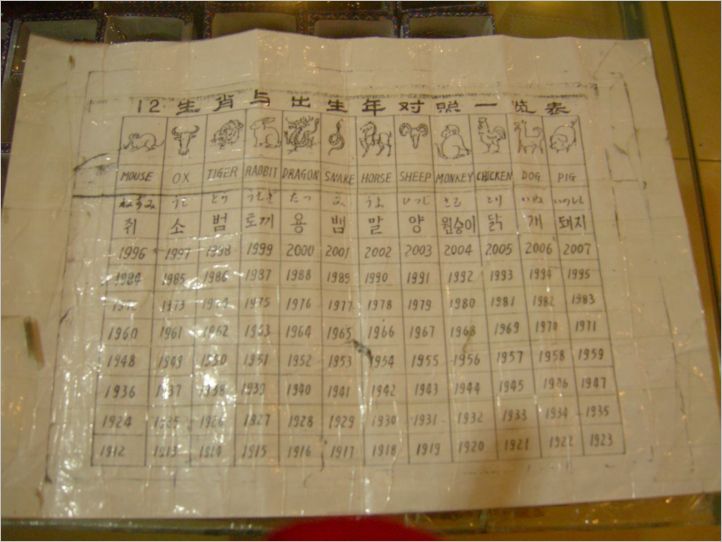 12 生肖与出生年对照一览表
MOUSE OX TIGER RABBIT DRAGON SNAKE HORSE SHEEP MONKEY CHICKEN DOG PIG
ねずみ うし とら うさぎ たつ み うま ひつじ さる とり いぬ いのしし
쥐 소 범 토끼 용 뱀 말 양 원숭이 닭 개 돼지
1996 1997 1998 1999 2000 2001 2002 2003 2004 2005 2006 2007
1984 1985 1986 1987 1988 1989 1990 1991 1992 1993 1994 1995
1972 1973 1974 1975 1976 1977 1978 1979 1980 1981 1982 1983
1960 1961 1962 1963 1964 1965 1966 1967 1968 1969 1970 1971
1948 1949 1950 1951 1952 1953 1954 1955 1956 1957 1958 1959
1936 1937 1938 1939 1940 1941 1942 1943 1944 1945 1946 1947
1924 1925 1926 1927 1928 1929 1930 1931 1932 1933 1934 1935
1912 1913 1914 1915 1916 1917 1918 1919 1920 1921 1922 1923